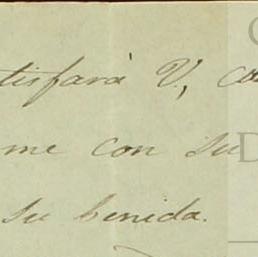 tisfará V, co
me con su
su benida.